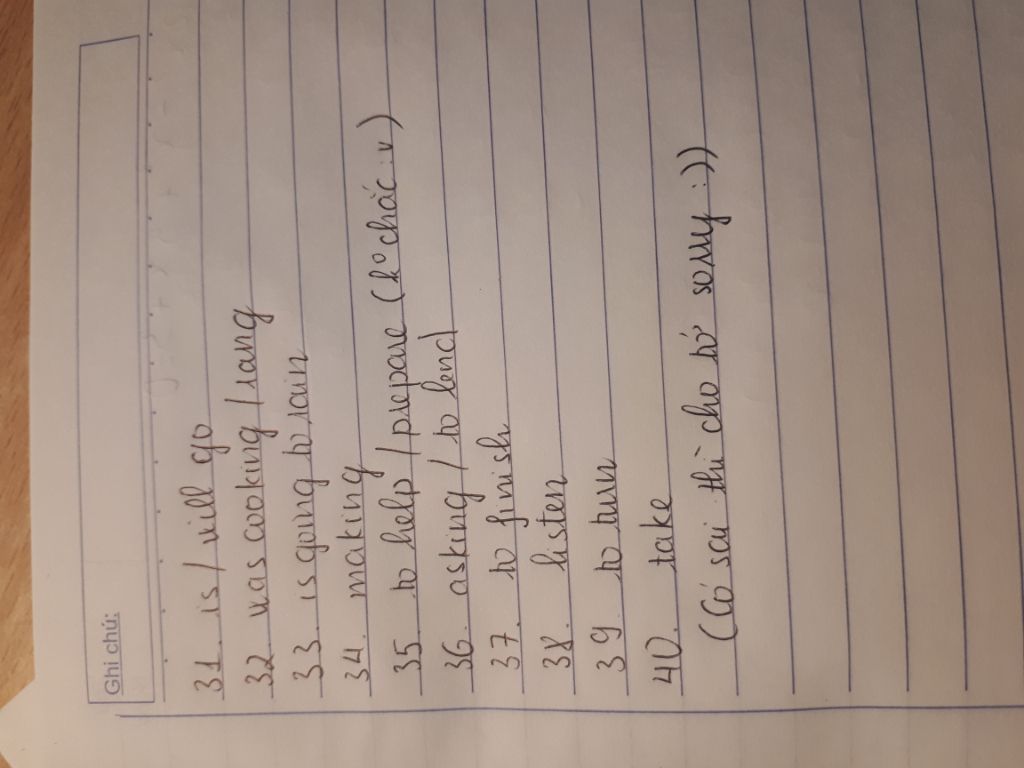 Ghi chú:
31. is / will go
32. was cooking / rang
33. is going to rain
34. making
35. to help / prepare (ko chắc :v)
36. asking / to lend
37. to finish
38. listen
39. to turn
40. take
(Có sai thì cho tớ sorry :))